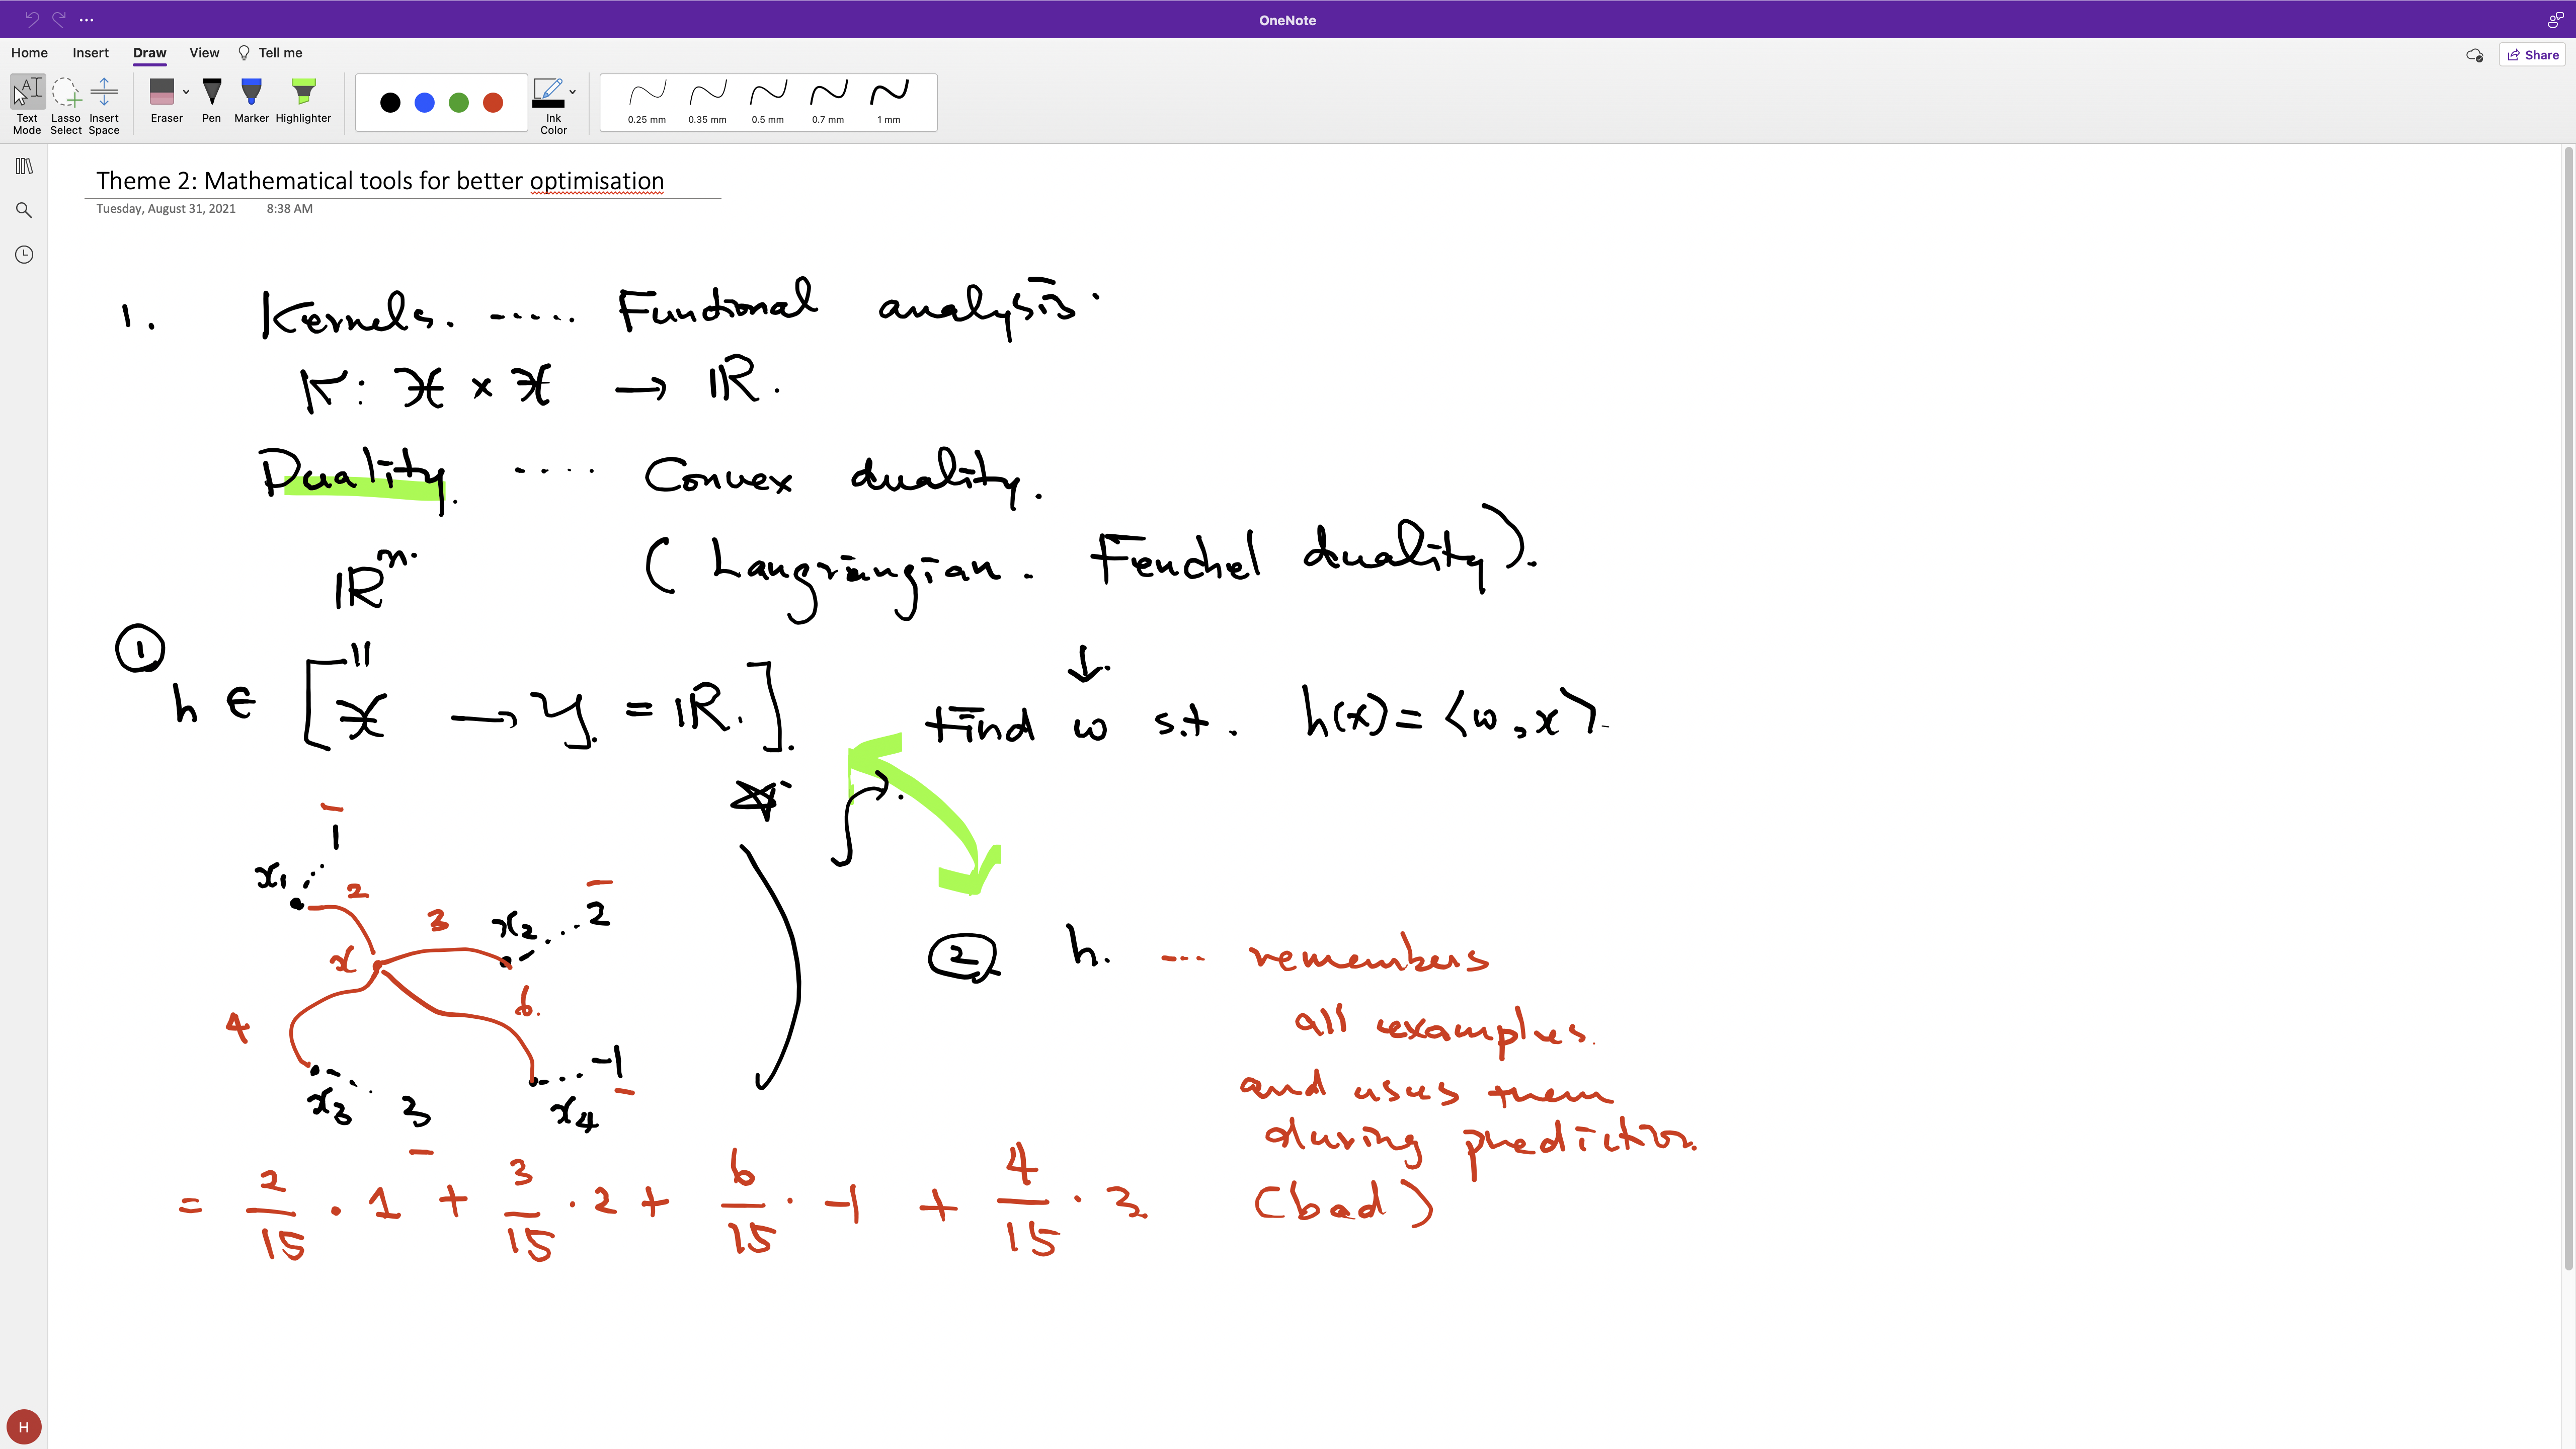 OneNote
Home Insert Draw View Tell me
Share
Text Mode
Lasso Select
Insert Space
Eraser
Pen
Marker
Highlighter
Ink Color
0.25 mm
0.35 mm
0.5 mm
0.7 mm
1 mm
Theme 2: Mathematical tools for better optimisation
Tuesday, August 31, 2021 8:38 AM
1. Kernels. ..... Functional analysis.
K: 𝒳 × 𝒳 → ℝ.
Duality. .... Convex duality.
(Langriangian. Fenchel duality).
ℝⁿ.
①
॥
h ∈ [𝒳 → 𝒴 = ℝ.].
↓.
find w s.t. h(x) = ⟨w, x⟩.
1
x₁
2
3
x₂
2
x
6.
4
-1
x₃
3
x₄
② h. ... remembers
all examples.
and uses them
during prediction.
(bad)
= 2/15 · 1 + 3/15 · 2 + 6/15 · -1 + 4/15 · 3
H